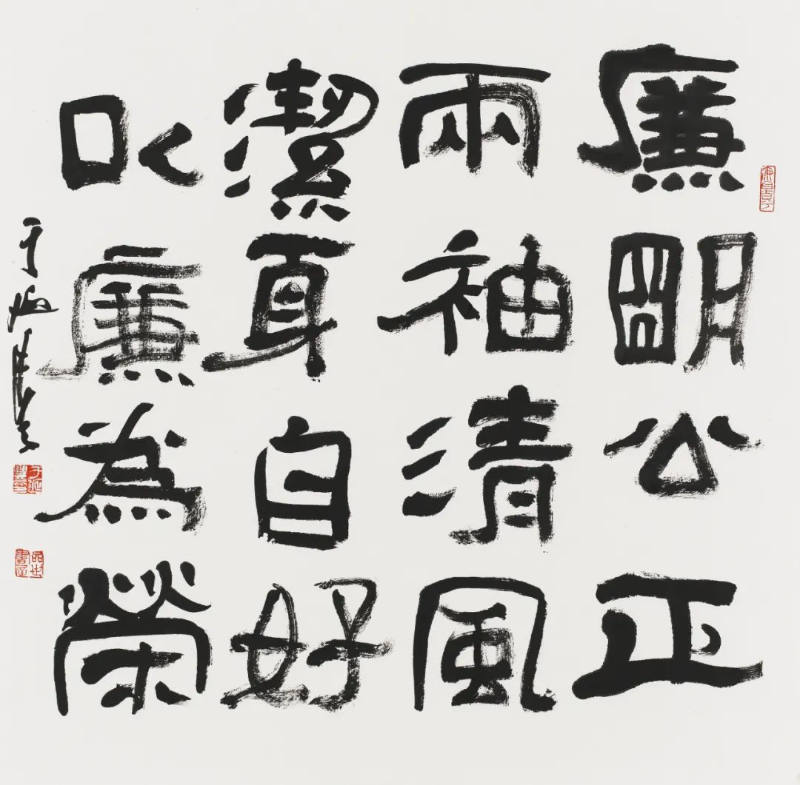 廉明公正
兩袖清風
潔身自好
以廉為榮